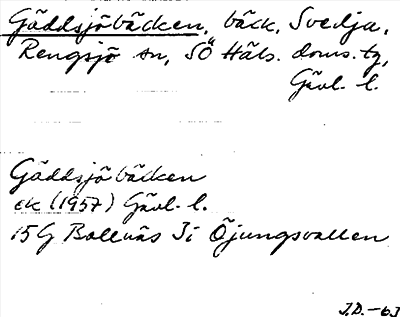 Gäddsjöbäcken, bäck, Svedja,
Rengsjö sn, SÖ Häls. doms. tg,
Gävl. l.
Gäddsjöbäcken
ek (1957) Gävl. l.
15G Bollnäs 3i Öjungsvallen
J.D. -63